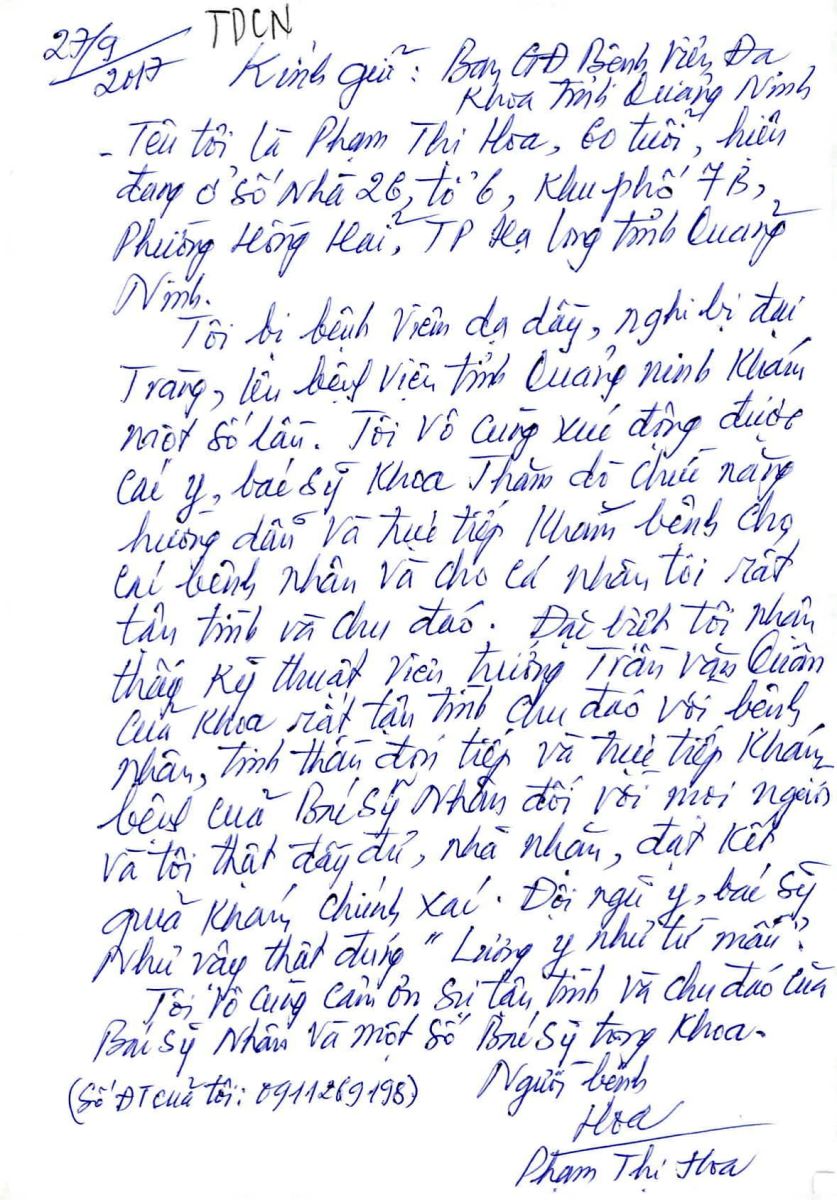 TDCN
27/9
2017
Kính gửi: Ban GĐ Bệnh Viện Đa
Khoa tỉnh Quảng Ninh
- Tên tôi là Phạm Thị Hoa, 60 tuổi, hiện
đang ở số nhà 26, tổ 6, Khu phố 7B,
Phường Hồng Hải, TP Hạ long tỉnh Quảng
Ninh.
Tôi bị bệnh viêm dạ dầy, nghi bị đại
Tràng, lên bệnh viện tỉnh Quảng ninh Khám
một số lần. Tôi vô cùng xúc động được
các y, bác sỹ Khoa Thăm dò chức năng
hướng dẫn và trực tiếp Khám bệnh cho
các bệnh nhân và cho cá nhân tôi rất
tận tình và chu đáo. Đặc biệt tôi nhận
thấy Kỹ thuật viên trưởng Trần văn Quân
của Khoa rất tận tình chu đáo với bệnh
nhân, tinh thần đón tiếp và trực tiếp Khám
bệnh của Bác Sỹ Nhân đối với mọi người
và tôi thật đầy đủ, nhã nhặn, đạt Kết
quả Khám chính xác. Đội ngũ y, bác sỹ
Như vậy thật đúng "Lương y như từ mẫu".
Tôi vô cùng cảm ơn sự tận tình và chu đáo của
Bác Sỹ Nhân và một số Bác Sỹ trong Khoa.
(Số ĐT của tôi: 0911269198) Người bệnh
Hoa
Phạm Thị Hoa